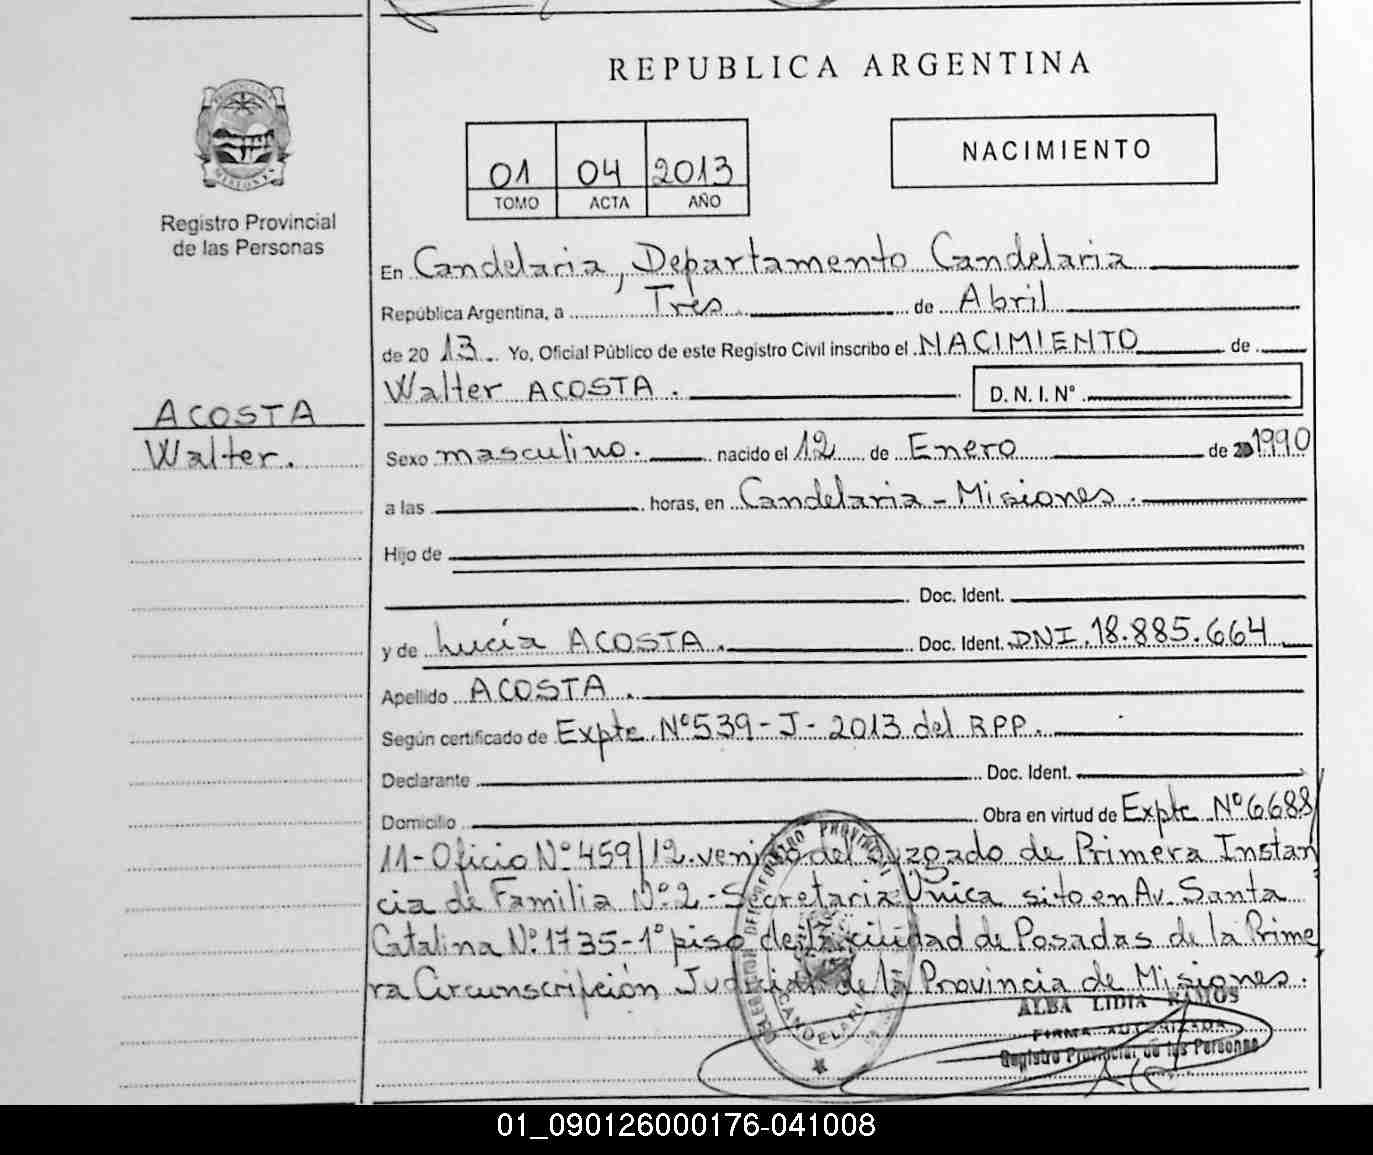 REPUBLICA ARGENTINA
NACIMIENTO
01 04 2013
TOMO ACTA AÑO
MISIONES
Registro Provincial
de las Personas
En Candelaria, Departamento Candelaria
República Argentina, a Tres de Abril
de 2013. Yo, Oficial Público de este Registro Civil inscribo el NACIMIENTO de
Walter ACOSTA. D. N. I. Nº
ACOSTA
Walter.
Sexo masculino. nacido el 12 de Enero de 1990
a las horas, en Candelaria - Misiones.
Hijo de
Doc. Ident.
y de Lucía ACOSTA. Doc. Ident. DNI. 18.885.664
Apellido ACOSTA.
Según certificado de Expte Nº 539 - J - 2013 del RPP.
Declarante Doc. Ident.
Domicilio Obra en virtud de Expte Nº 6688/
11 - Oficio Nº 459/12. venido del Juzgado de Primera Instan
cia de Familia Nº 2 - Secretaria Única sito en Av. Santa
Catalina Nº 1735 - 1º piso de la ciudad de Posadas de la Prime
ra Circunscripción Judicial de la Provincia de Misiones.
CANDELARIA
ALBA LIDIA RAMOS
FIRMA AUTORIZADA
Registro Provincial de las Personas
01_090126000176-041008